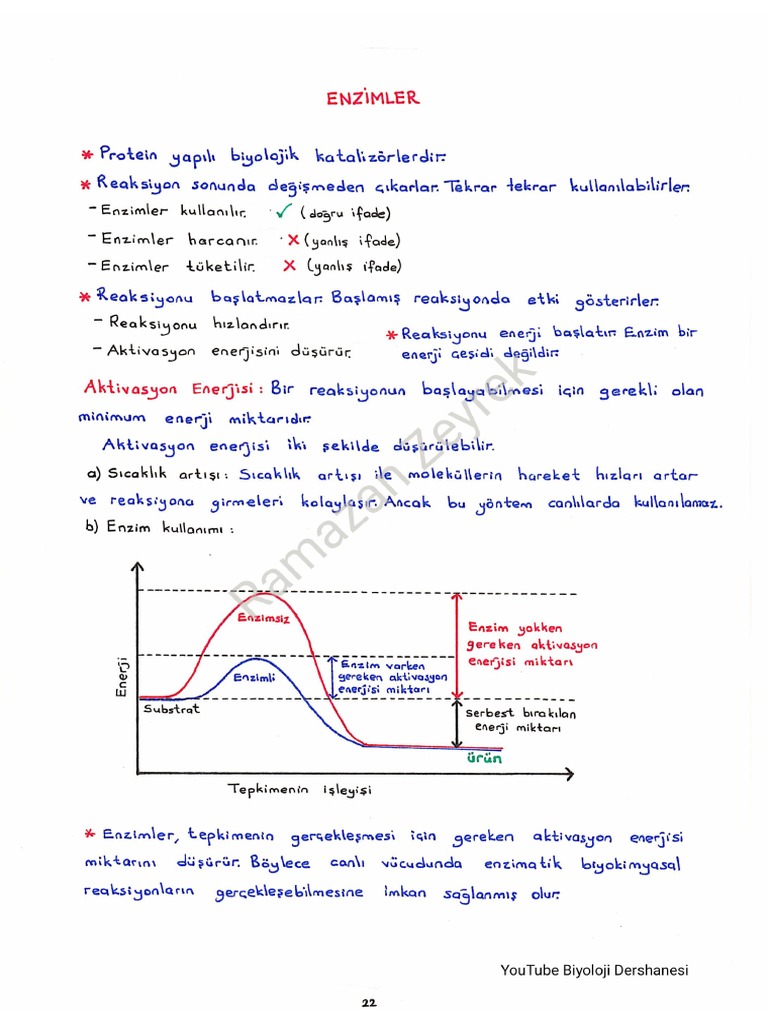 ENZİMLER
* Protein yapılı biyolojik katalizörlerdir.
* Reaksiyon sonunda değişmeden çıkarlar. Tekrar tekrar kullanılabilirler.
- Enzimler kullanılır. ✓ (doğru ifade)
- Enzimler harcanır. ✗ (yanlış ifade)
- Enzimler tüketilir. ✗ (yanlış ifade)
* Reaksiyonu başlatmazlar. Başlamış reaksiyonda etki gösterirler.
- Reaksiyonu hızlandırır.
- Aktivasyon enerjisini düşürür.
* Reaksiyonu enerji başlatır. Enzim bir
enerji çeşidi değildir.
Aktivasyon Enerjisi : Bir reaksiyonun başlayabilmesi için gerekli olan
minimum enerji miktarıdır.
Aktivasyon enerjisi iki şekilde düşürülebilir.
a) Sıcaklık artışı : Sıcaklık artışı ile moleküllerin hareket hızları artar
ve reaksiyona girmeleri kolaylaşır. Ancak bu yöntem canlılarda kullanılamaz.
b) Enzim kullanımı :
Ramazan Zeyrek
Enerji
Enzimsiz
Enzimli
Substrat
Enzim varken
gereken aktivasyon
enerjisi miktarı
Enzim yokken
gereken aktivasyon
enerjisi miktarı
Serbest bırakılan
enerji miktarı
ürün
Tepkimenin işleyişi
* Enzimler, tepkimenin gerçekleşmesi için gereken aktivasyon enerjisi
miktarını düşürür. Böylece canlı vücudunda enzimatik biyokimyasal
reaksiyonların gerçekleşebilmesine imkan sağlanmış olur.
YouTube Biyoloji Dershanesi
22